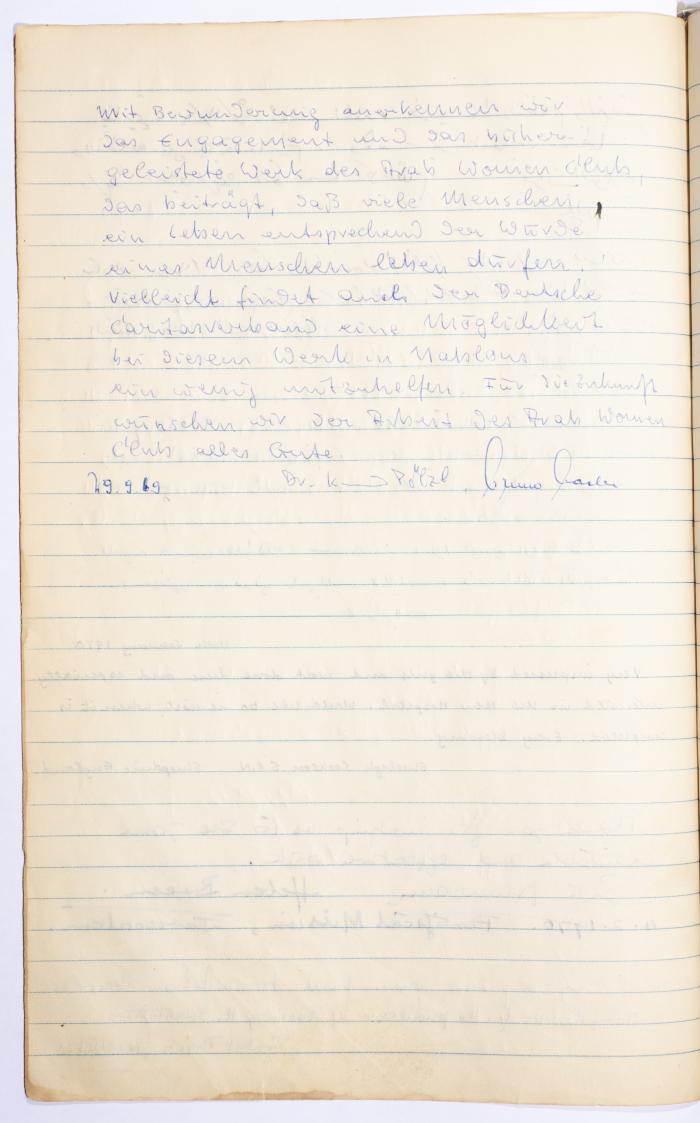 Mit Bewunderung anerkennen wir
das Engagement und das bisher
geleistete Werk des Arab Women Club,
das beiträgt, daß viele Menschen
ein Leben entsprechend der Würde
eines Menschen leben dürfen.
Vielleicht findet auch der Deutsche
Caritasverband eine Möglichkeit
bei diesem Werk in Nablous
ein wenig mitzuhelfen. Für die Zukunft
wünschen wir der Arbeit des Arab Women
Club alles Gute.
29.9.69 Dr. Pölzl,